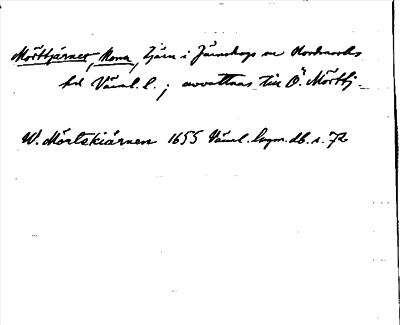 Mörttjärnet, Norra, tjärn i Järnskogs sn Nordmarks
hd Värml. l.; avvattnas till Ö. Mörttj.
W. Mörtskiärnen 1655 Värml. lagm. db. s. 72